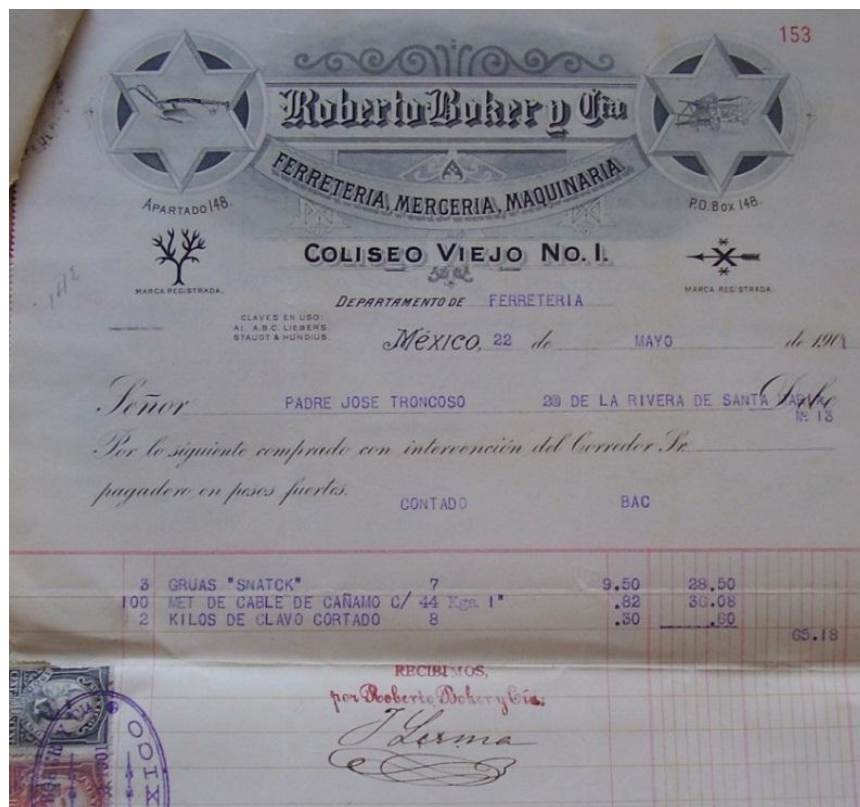 153
Roberto Boker y Cía
FERRETERIA, MERCERIA, MAQUINARIA.
APARTADO 148.
P.O. BOX 148.
COLISEO VIEJO No. 1.
MARCA REGISTRADA.
MARCA REGISTRADA.
DEPARTAMENTO DE FERRETERIA
CLAVES EN USO:
A1. A.B.C. LIEBERS
STAUDT & HUNDIUS.
México, 22 de MAYO de 1901
Señor PADRE JOSE TRONCOSO 2a DE LA RIVERA DE SANTA MARIA Debe
Nº 13
Por lo siguiente comprado con intervención del Corredor Sr.
pagadero en pesos fuertes.
CONTADO BAC
3 GRUAS "SNATCK" 7 9.50 28.50
100 MET DE CABLE DE CAÑAMO C/ 44 Kgs. 1" .82 36.08
2 KILOS DE CLAVO CORTADO 8 .30 .60
65.18
RECIBIMOS,
por Roberto Boker y Cía.
J Lerma